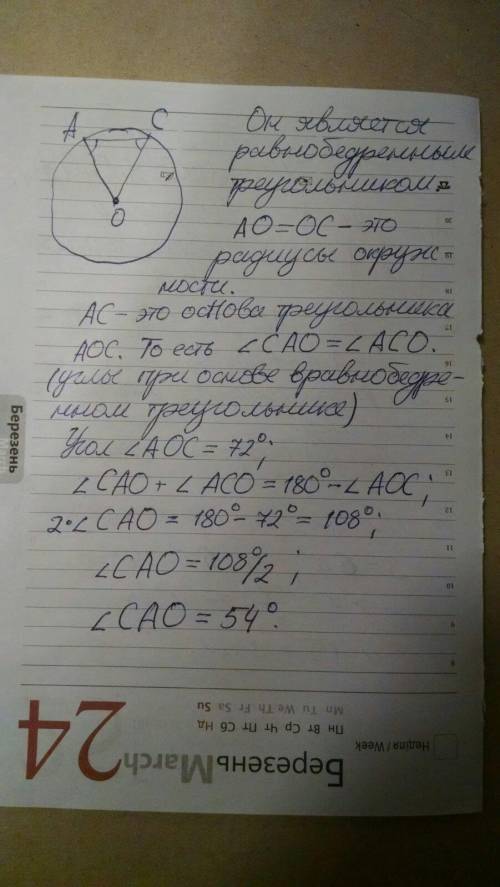 A
C
O
Он является
равнобедренным
треугольником.
AO=OC – это
радиусы окруж
ности.
AC – это основа треугольника
AOC. То есть ∠CAO = ∠ACO.
(углы при основе в равнобедре-
нном треугольнике)
Угол ∠AOC = 72°;
∠CAO + ∠ACO = 180° - ∠AOC;
2·∠CAO = 180° - 72° = 108°;
∠CAO = 108°/2;
∠CAO = 54°.
Березень
20
19
18
17
16
15
14
13
12
11
10
9
8
24
Березень March
Пн Вт Ср Чт Пт Сб Нд
Mn Tu We Th Fr Sa Su
Неділя / Week